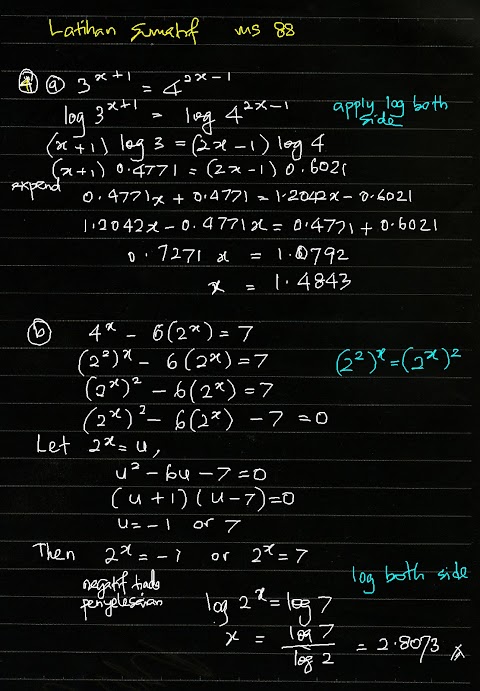 Latihan Sumatif ms 88
4 a 3^(x+1) = 4^(2x-1)
log 3^(x+1) = log 4^(2x-1) apply log both side
(x+1) log 3 = (2x-1) log 4
(x+1) 0.4771 = (2x-1) 0.6021
expend
0.4771x + 0.4771 = 1.2042x - 0.6021
1.2042x - 0.4771x = 0.4771 + 0.6021
0.7271 x = 1.0792
x = 1.4843
b 4^x - 6(2^x) = 7
(2^2)^x - 6(2^x) = 7 (2^2)^x = (2^x)^2
(2^x)^2 - 6(2^x) = 7
(2^x)^2 - 6(2^x) - 7 = 0
Let 2^x = u,
u^2 - 6u - 7 = 0
(u+1)(u-7) = 0
u = -1 or 7
Then 2^x = -1 or 2^x = 7
negatif tiada
penyelesaian
log both side
log 2^x = log 7
x = log 7 / log 2 = 2.8073